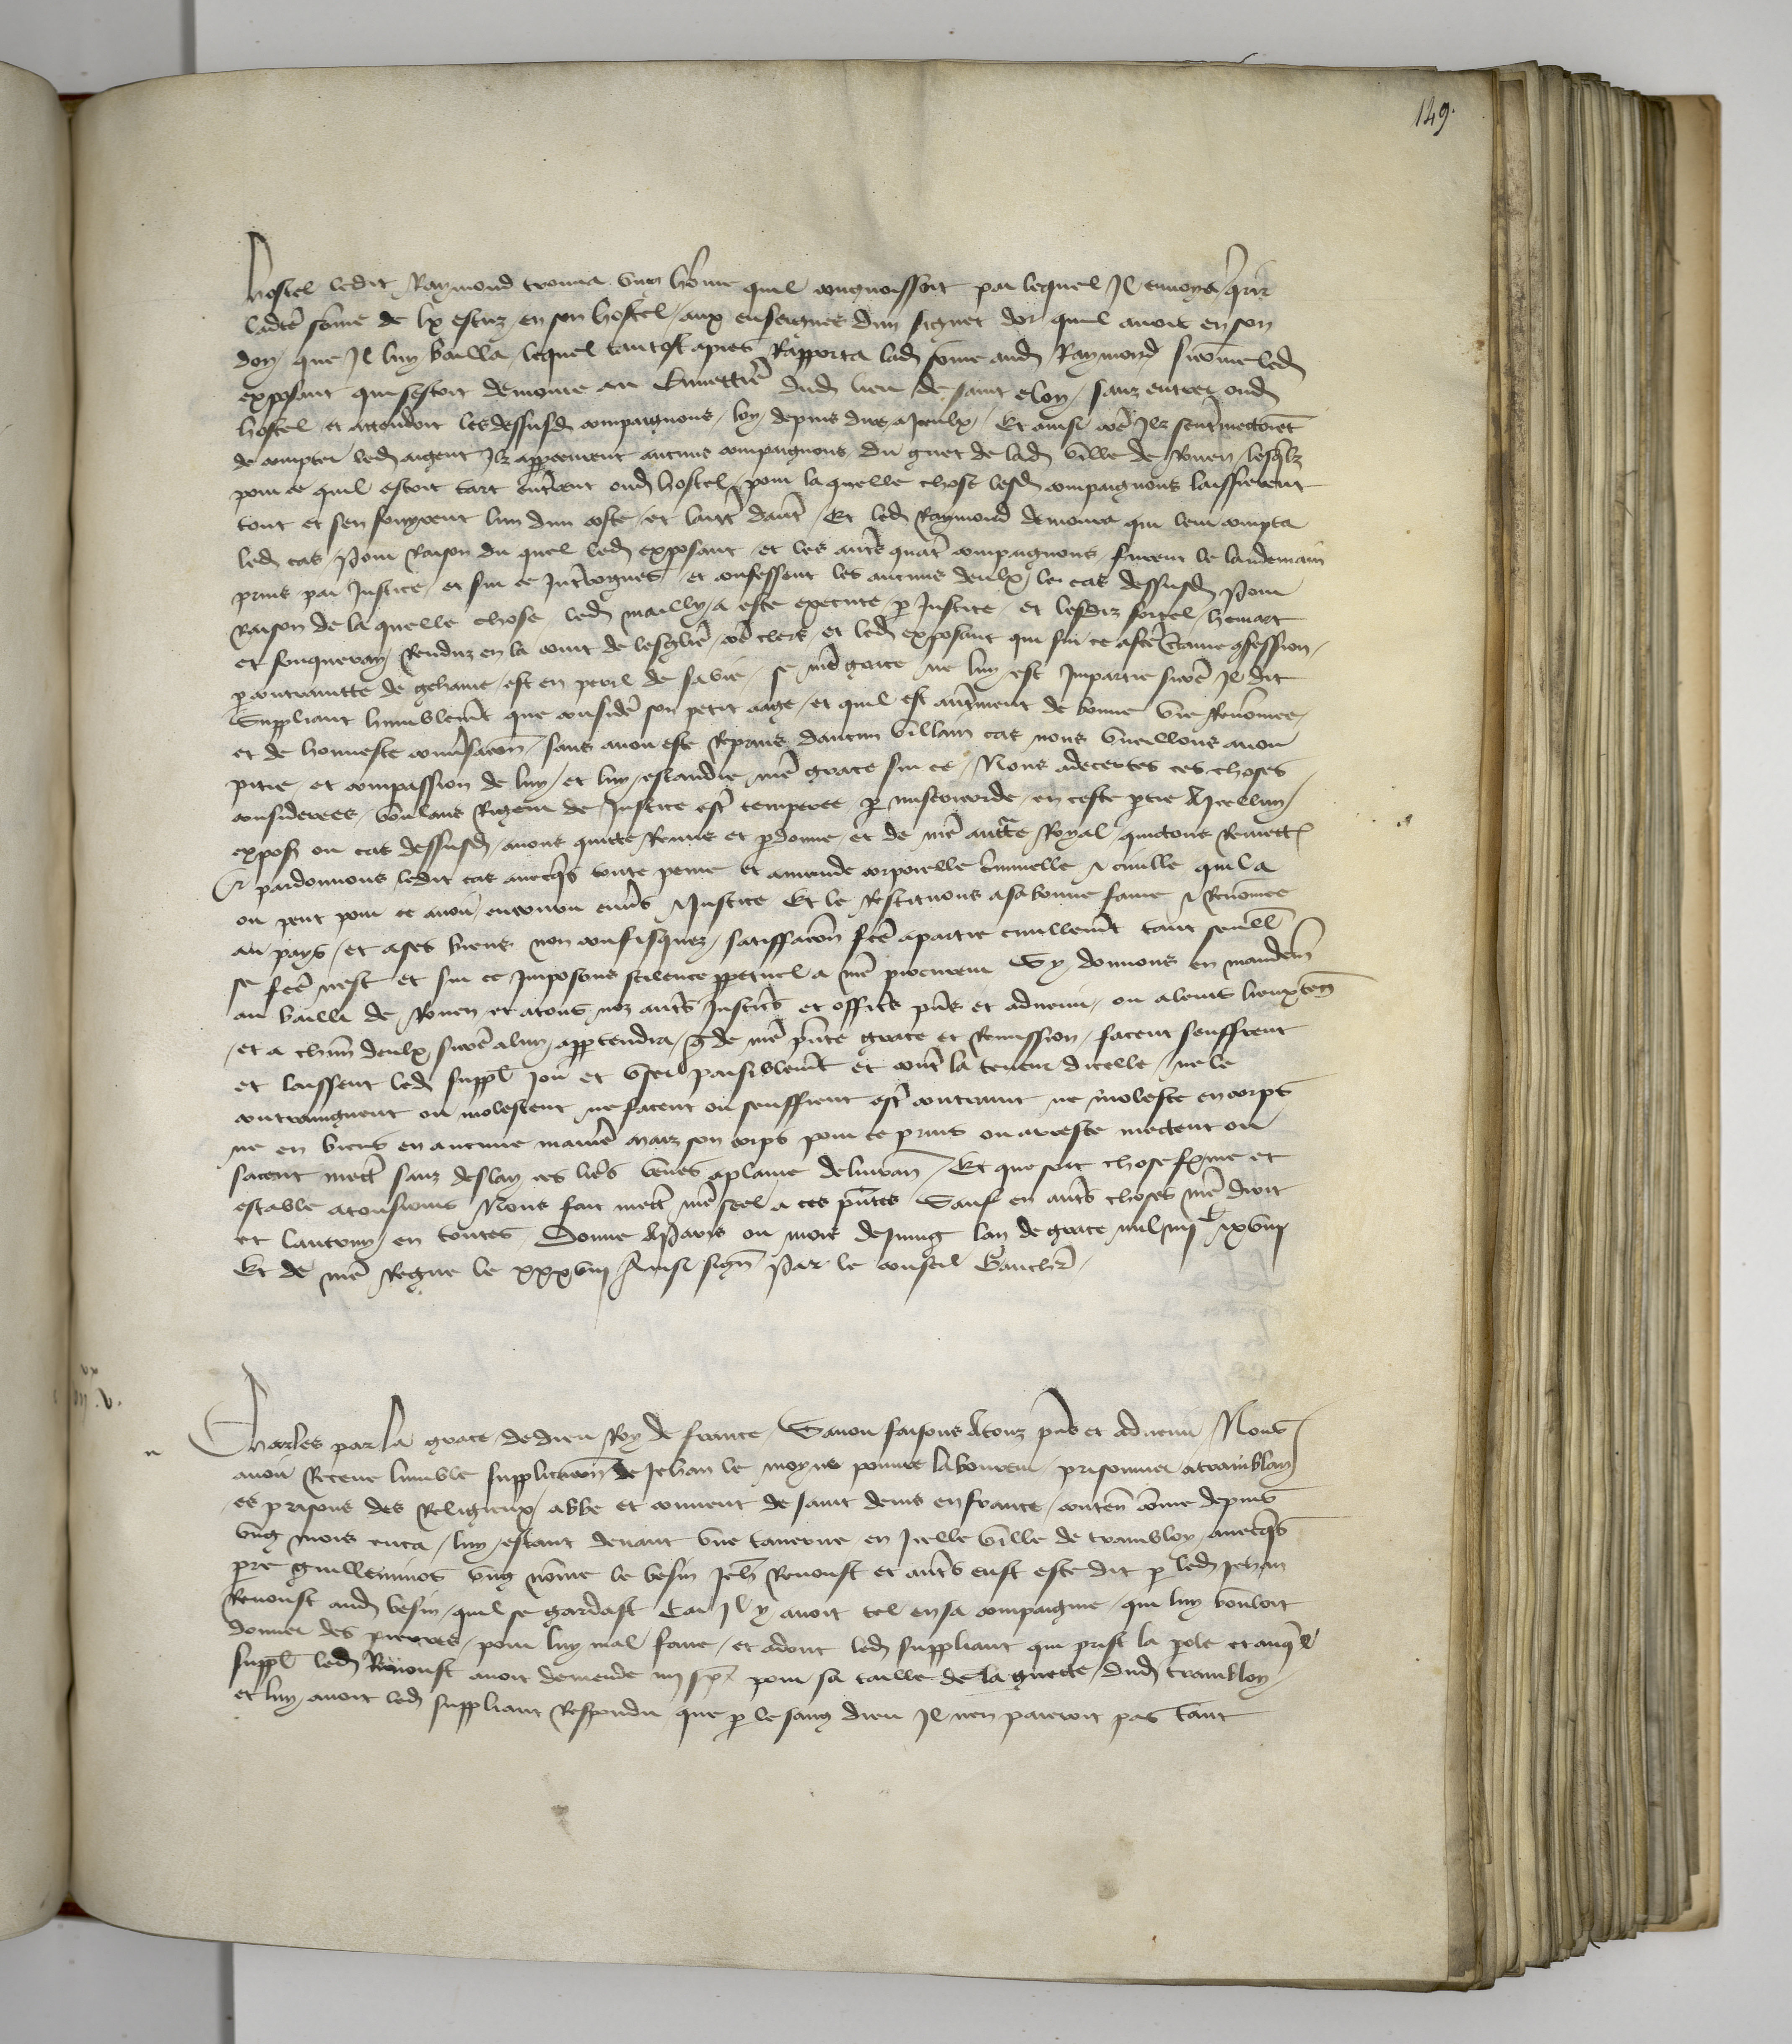 149.
hostel ledit Raymond trouva ung hõme quil congnoissoit par lequel Il envoya qrir
ladcẽ sõme de lx escuz en son hostel aux enseignes dun signet dor quil avoit en son
doy que Il luy bailla lequel tantost apres Rapporta lad sõme aud Raymond sicõme led
exposant qui sestoit demoure au dud lieu de saint eloy sanz entrer oud
hostel et attendoit lesdessusd compaignons loy depuis dire a Iceulx Et ainsi cõe Ilz sentremectoiẽt
de compter led argent Ilz apperceurent aucuns compaignons du guet de lad ville de Rouen lesqlz
pour ce quil estoit tart entrerent oud hostel pour laquelle chose lesd compaignons laissierent
tout et sen fouyrent lun dun coste et lautẽ dautẽ Et led Raymond demoura qui leur compta
led cas Pour Raison du quel led exposant et les autẽs quatẽ compaignons furent le landemain
prins par Justice et sur ce Intrrogues et confessent les aucuns deulx le cas dessusd Pour
Raison de laquelle chose led mailly a este execute p Justice et lesdiz sortel hemart
et fouqueray Renduz en la court de lesglise cõe clers et led exposant qui sur ce a fctẽ ctaine cõfession
p contrainte de gehaine est en peril de sa vie se nrẽ grace ne luy est Impartie sicõe Il dit
Suppliant humblemt que consideré son petit aage et quil est autremẽt de bonne vie Renõmee
et de honneste convsacon sans avoir este Reprins daucun villain cas nous vueillons avoir
pitie et compassion de luy et luy eslandre nrẽ grace sur ce Nous adecertes ces choses
considerees voulans Rigeur de Justice estrẽ temperee p misericorde en ceste ptie A Icelluy
expos ou cas dessusd avons quitte Remis et pdonne et de nrẽ auctẽ Royal quictons Remett
Et pardonnons ledit cas avecqs toute peine et amende corporelle criminelle & civille quil a
ou peut pour ce avoir encouru envs Justice Et le Restituons a sa bonne fame & Renõmee
au pays et a ses biens non confisquez satiffacõn fctẽ a partie civillemt tant seulemt
se fctẽ nest et sur ce Imposons scilence perpetuel a nrẽ procureur Sy donnons en mandem
au bailli de Rouen et a tous noz autẽs Justicẽs et officẽs pns et advenir ou a leurs lieuxten
et a chun deulx sicõe a luy appartendra q de nrẽ pnte grace et Remission facent seuffrent
et laissent led suppl Joir et user paisiblemt et contẽ la teneur dicelle ne le
contraingnent ou molestent ne facent ou seuffrent estrẽ contraint ne moleste en corps
ne en biens en aucune manierẽ maiz son corps pour ce prins ou arreste mectent ou
facent mectrẽ sanz deslay ces lrẽs veues a plaine delivran Et que soit chose ferme et
estable a tousiours Nous fait mectrẽ nrẽ seel a ces pntes Sauf en autẽs choses nrẽ droit
et lautruy en toutes Donne A Paris ou mois de Juing lan de grace mil iiijc xviij
Et de nrẽ Regne le xxxviij Ainsi signẽ Par le conseil Gaucher

Charles par la grace de dieu Roy de france Savoir faisons A touz pns et advenir Nous
avoir Receue lumble supplicacõn de Jehan le moyne pouvre laboureur prisonnier a tramblay
es prisons des Religieux abbe et couvent de saint denis en france conten cõme depuis
ung mois enca luy estant devant une taverne en Icelle ville de trambloy avecqs
pre guilleminot ung nõme le besin Jeh Renoust et autẽs eust este dit p led Jehan
Renoust aud besin quil se gardast Car Il y avoit tel en sa compaignie qui luy vouloit
donner des pierres pour luy mal faire et adont led suppliant qui prist la pole et auql
suppl led Renoust avoit demende iiij s p pour sa taille de la guette dud trambloy
et luy avoit led suppliant Respondu que p le sang dieu Il nen paieroit pas tant